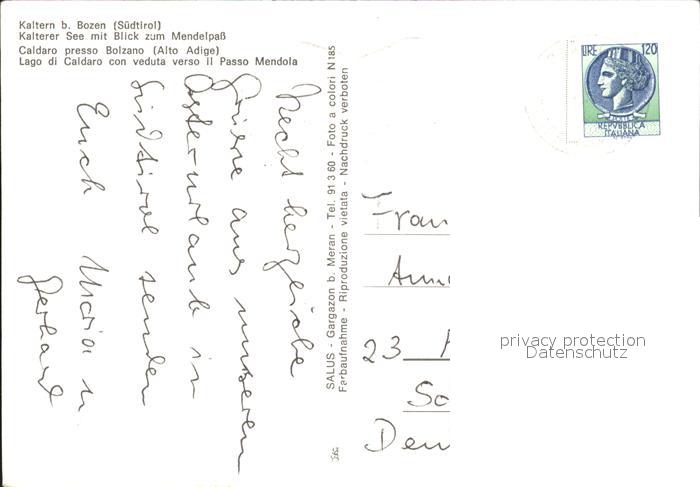 Kaltern b. Bozen (Südtirol)
Kalterer See mit Blick zum Mendelpaß
Caldaro presso Bolzano (Alto Adige)
Lago di Caldaro con veduta verso il Passo Mendola
Recht herzliche
Grüsse aus unserem
Osterurlaub in
Südtirol senden
Euch Maria u
Gerhard
SALUS - Gargazon b. Meran - Tel. 91 3 60 - Foto a colori N 185
Farbaufnahme - Riproduzione vietata - Nachdruck verboten
LIRE 120
REPVBBLICA
ITALIANA
Frau
23
privacy protection
Datenschutz